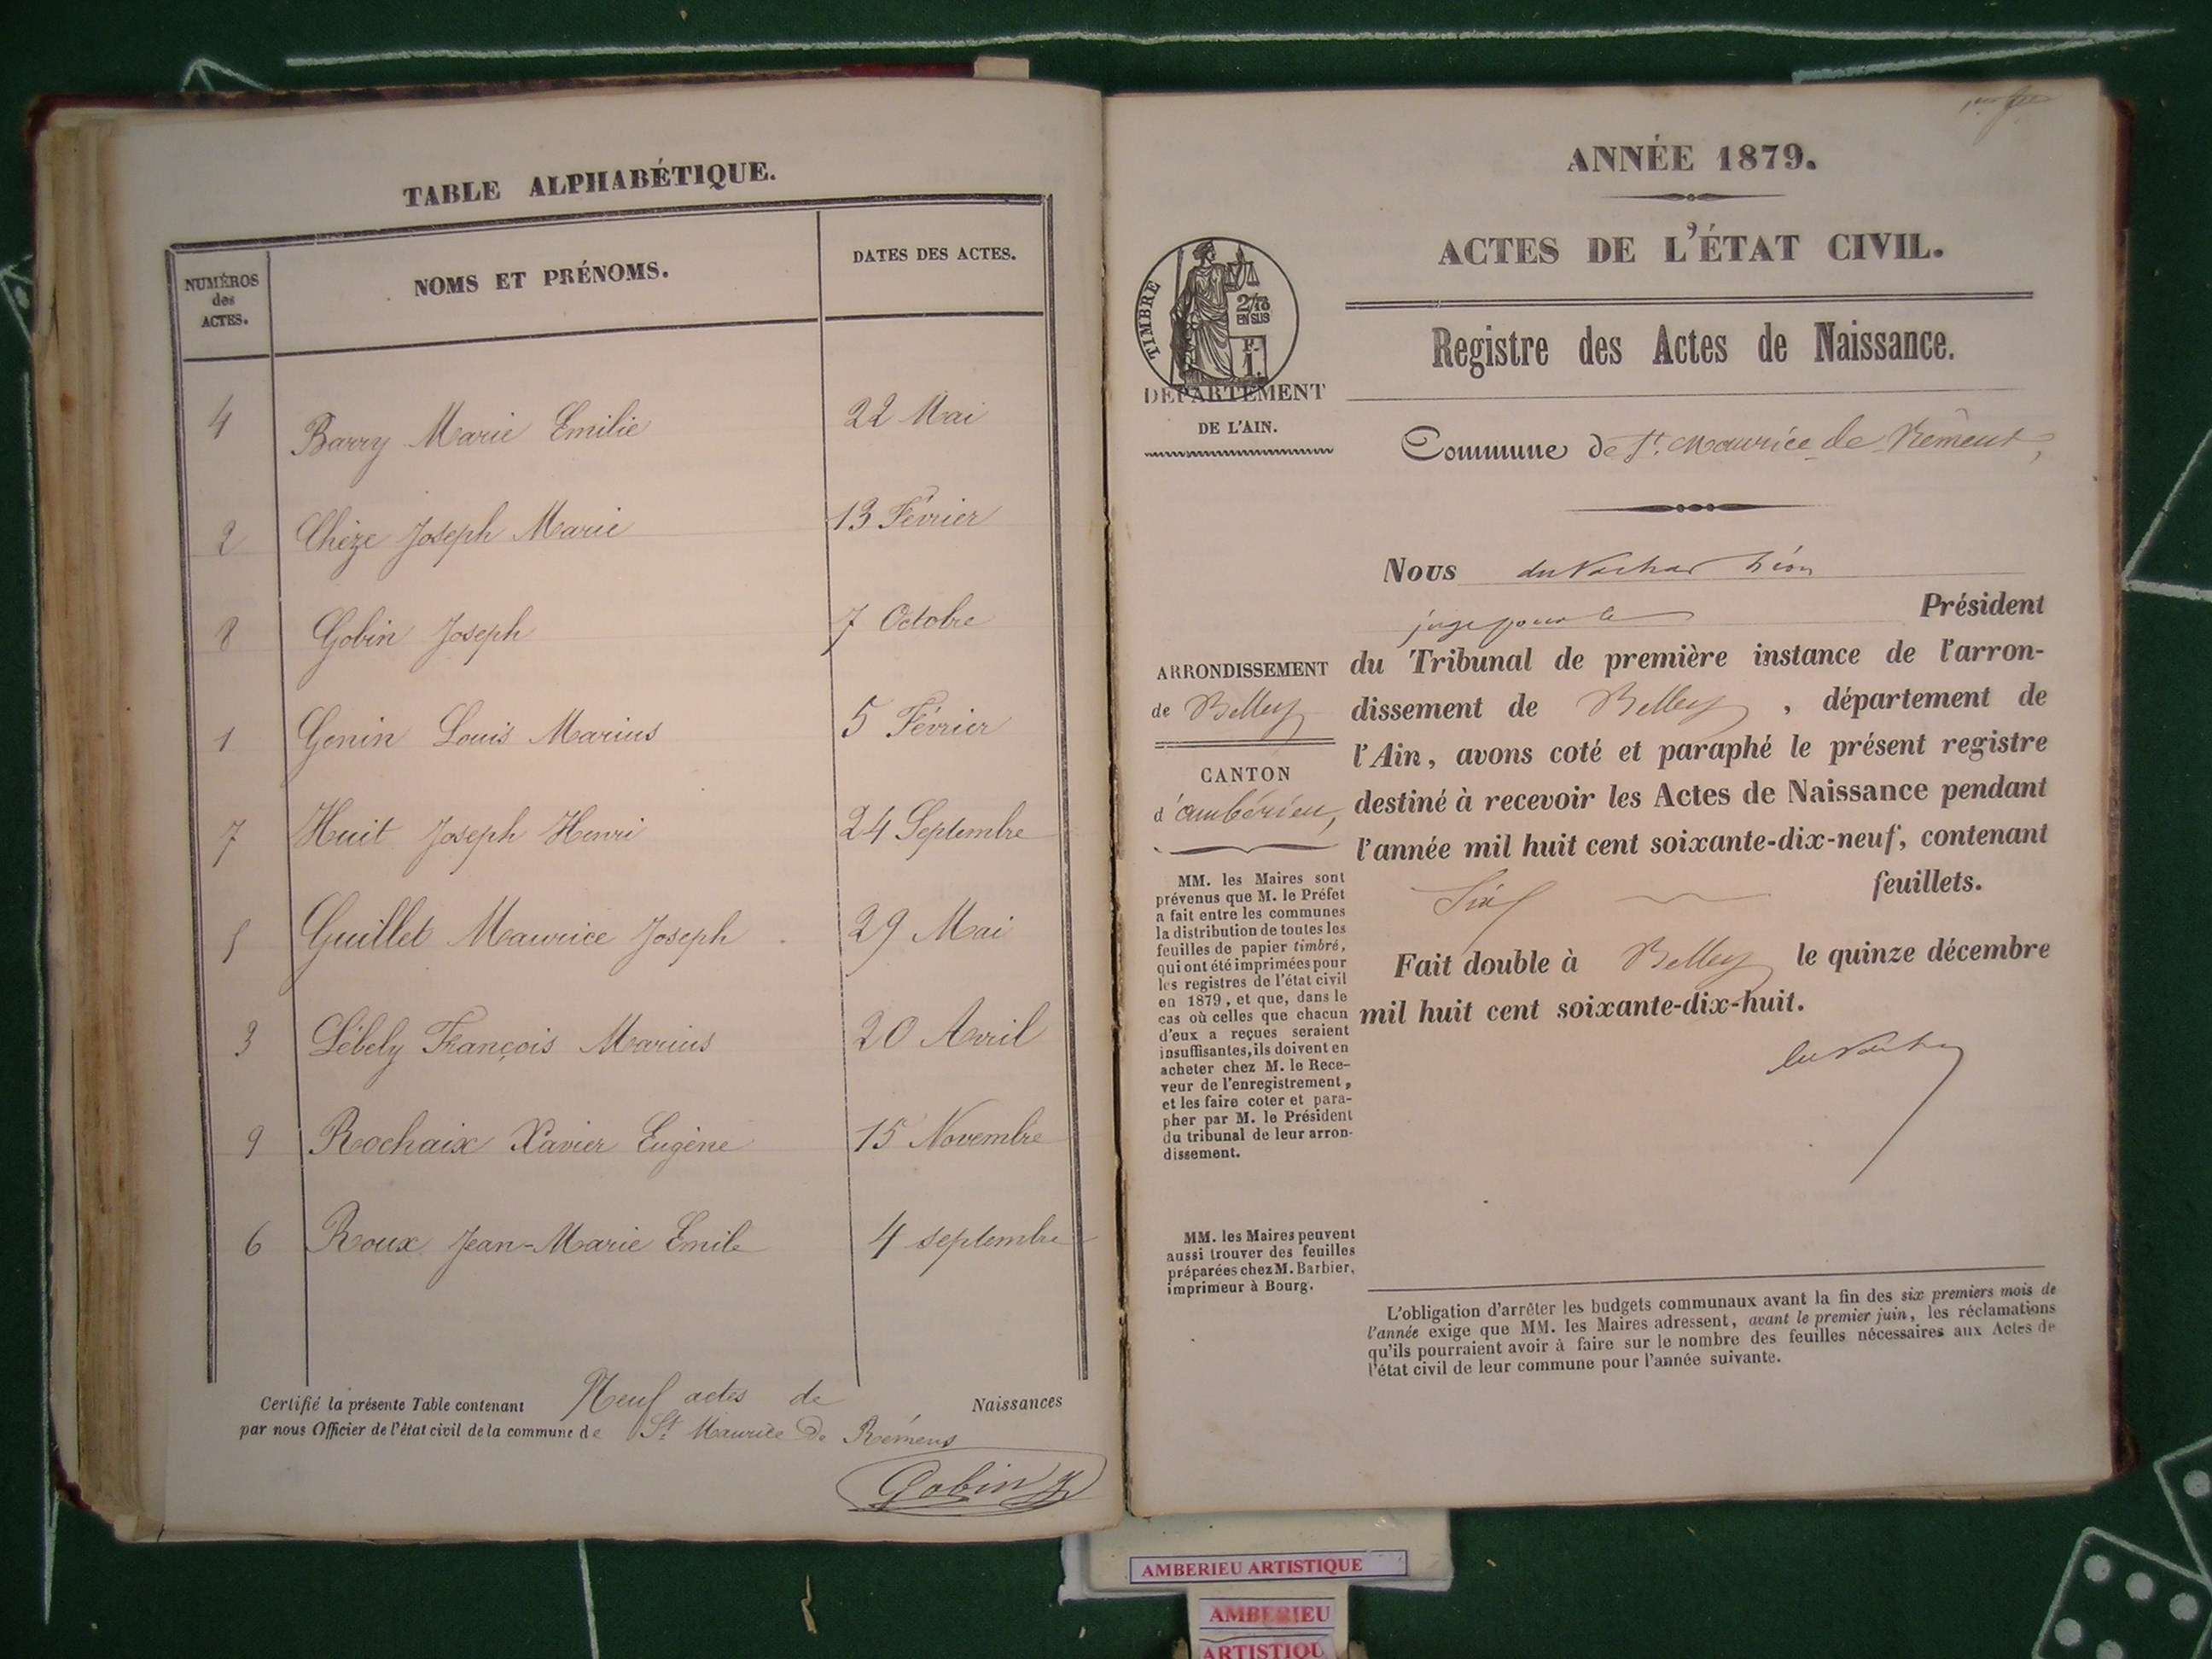 TABLE ALPHABÉTIQUE.
NUMÉROS des ACTES.
NOMS ET PRÉNOMS.
DATES DES ACTES.
4 Barry Marie Emilie 22 Mai
2 Chèze Joseph Marie 13 Février
8 Gobin Joseph 7 Octobre
1 Genin Louis Marius 5 Février
7 Huit Joseph Henri 24 Septembre
5 Guillet Maurice Joseph 29 Mai
3 Lébely François Marius 20 Avril
9 Rochaix Xavier Eugène 15 Novembre
6 Roux Jean-Marie Emile 4 septembre
Certifié la présente Table contenant Neuf actes de Naissances
par nous Officier de l'état civil de la commune de St Maurice De Rémens
Gobin
ANNÉE 1879.
ACTES DE L'ÉTAT CIVIL.
TIMBRE
2/10
EN SUS
F.
1.
DÉPARTEMENT
DE L'AIN.
Registre des Actes de Naissance.
Commune de St. Maurice de Rémens,
ARRONDISSEMENT
de Belley
CANTON
d'ambérieu,
MM. les Maires sont
prévenus que M. le Préfet
a fait entre les communes
la distribution de toutes les
feuilles de papier timbré,
qui ont été imprimées pour
les registres de l'état civil
en 1879, et que, dans le
cas où celles que chacun
d'eux a reçues seraient
insuffisantes, ils doivent en
acheter chez M. le Rece-
veur de l'enregistrement,
et les faire coter et para-
pher par M. le Président
du tribunal de leur arron-
dissement.
MM. les Maires peuvent
aussi trouver des feuilles
préparées chez M. Barbier,
imprimeur à Bourg.
Nous Léon
juge pour le Président
du Tribunal de première instance de l'arron-
dissement de Belley, département de
l'Ain, avons coté et paraphé le présent registre
destiné à recevoir les Actes de Naissance pendant
l'année mil huit cent soixante-dix-neuf, contenant
Six feuillets.
Fait double à Belley le quinze décembre
mil huit cent soixante-dix-huit.
L'obligation d'arrêter les budgets communaux avant la fin des six premiers mois de
l'année exige que MM. les Maires adressent, avant le premier juin, les réclamations
qu'ils pourraient avoir à faire sur le nombre des feuilles nécessaires aux Actes de
l'état civil de leur commune pour l'année suivante.
AMBERIEU ARTISTIQUE
AMBERIEU
ARTISTIQU